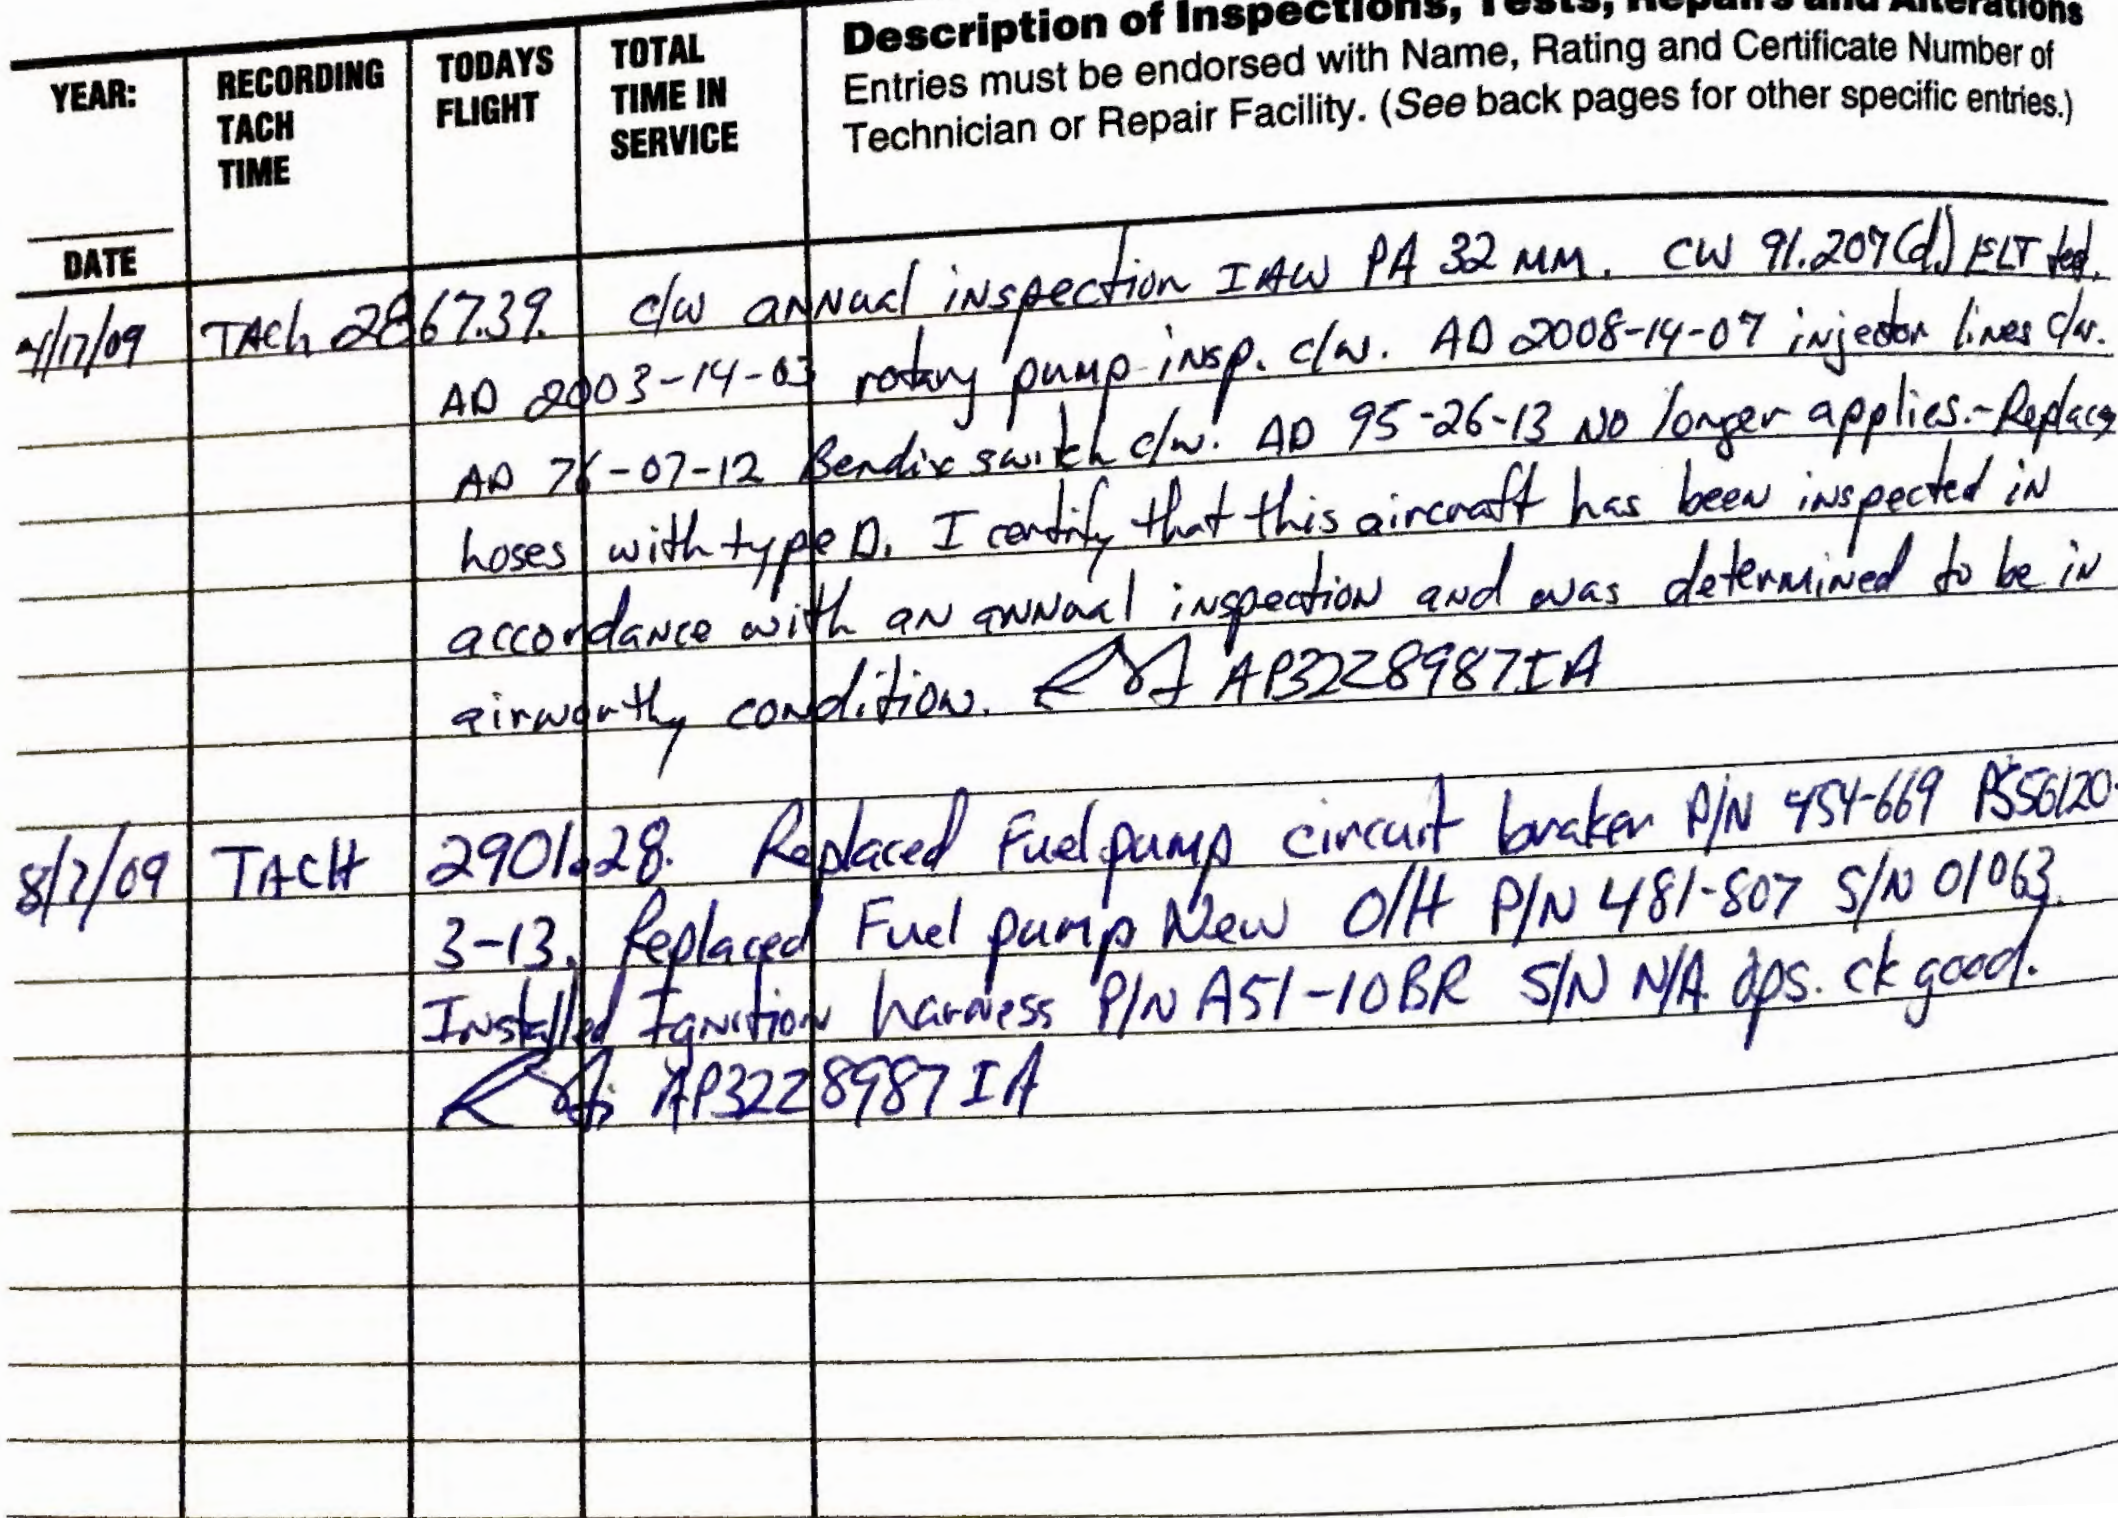 Description of Inspections, Tests, Repairs and Alterations
Entries must be endorsed with Name, Rating and Certificate Number of
Technician or Repair Facility. (See back pages for other specific entries.)
YEAR:
RECORDING
TACH
TIME
TODAYS
FLIGHT
TOTAL
TIME IN
SERVICE
DATE
4/17/09 TACh 2867.39. c/w annual inspection IAW PA 32 MM. CW 91.207(d.) ELT
AD 2003-14-03 rotary pump insp. c/w. AD 2008-14-07 injector lines c/w.
AD 76-07-12 Bendix switch c/w. AD 95-26-13 No longer applies.-Replace
hoses with type D. I certify that this aircraft has been inspected in
accordance with an annual inspection and was determined to be in
airworthy condition. AP3228987IA
8/7/09 TACH 2901.28. Replaced Fuel pump circuit braker P/N 454-669 PS56120-
3-13. Replaced Fuel pump New O/H P/N 481-807 S/N 01063.
Installed Ignition harness P/N A51-10BR S/N N/A. Ops. ck good.
AP3228987IA